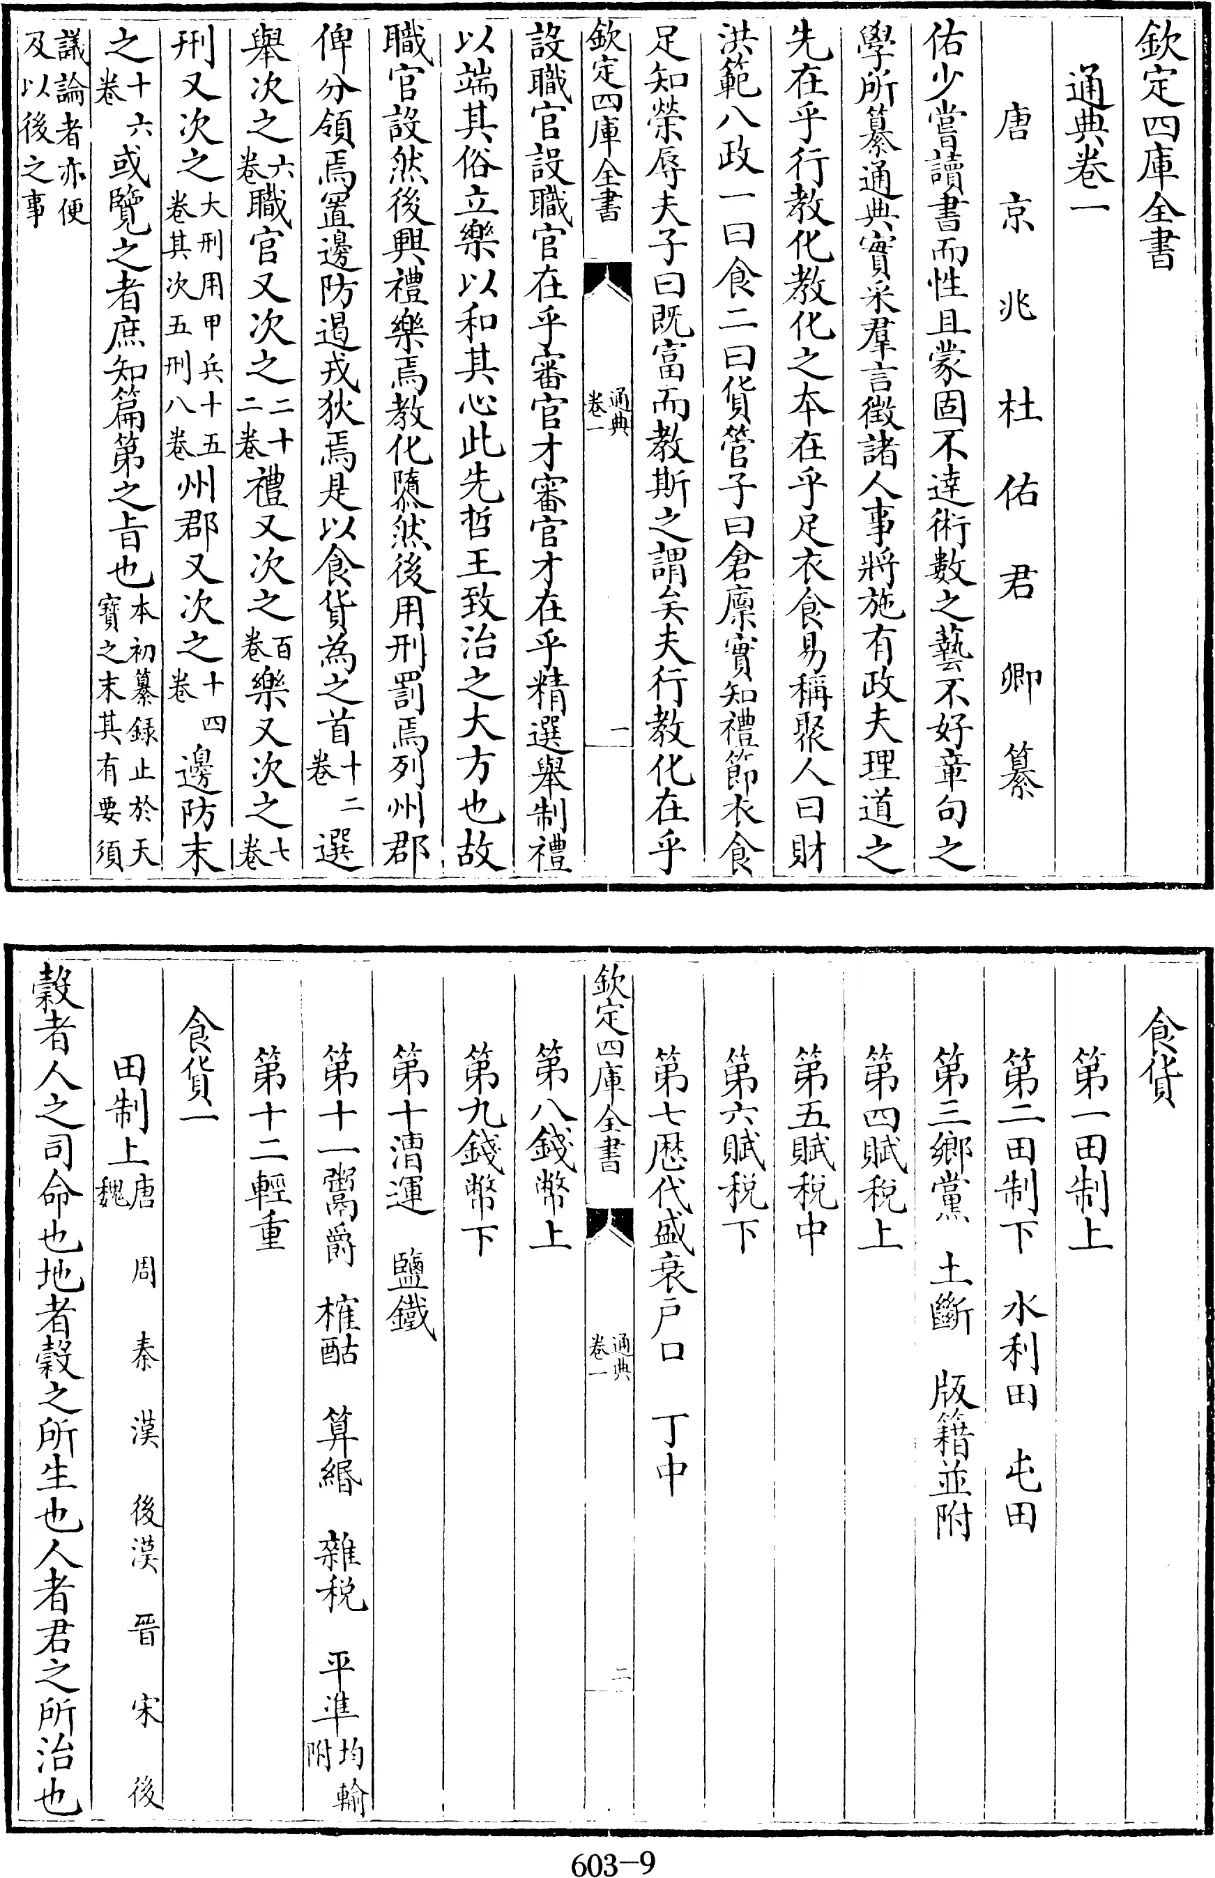 欽定四庫全書
通典卷一
唐京兆杜佑君卿纂
佑少嘗讀書而性且蒙固不達術數之藝不好章句之
學所纂通典實采羣言徵諸人事將施有政夫理道之
先在乎行教化教化之本在乎足衣食易稱聚人曰財
洪範八政一曰食二曰貨管子曰倉廩實知禮節衣食
足知榮辱夫子曰既富而教斯之謂矣夫行教化在乎
欽定四庫全書
通典
卷一
一
設職官設職官在乎審官才審官才在乎精選舉制禮
以端其俗立樂以和其心此先哲王致治之大方也故
職官設然後興禮樂焉教化隳然後用刑罰焉列州郡
俾分領焉置邊防遏戎狄焉是以食貨為之首十二卷選
舉次之六卷職官又次之二十二卷禮又次之百卷樂又次之七卷
刑又次之大刑用甲兵十五卷其次五刑八卷州郡又次之十四卷邊防末
之十六卷或覽之者庶知篇第之旨也本初纂錄止於天寳之末其有要須
議論者亦便
及以後之事
食貨
第一田制上
第二田制下 水利田 屯田
第三鄉黨 土斷 版籍並附
第四賦稅上
第五賦稅中
第六賦稅下
第七歷代盛衰戶口 丁中
欽定四庫全書
通典
卷一
二
第八錢幣上
第九錢幣下
第十漕運 鹽鐵
第十一鬻爵 榷酤 算緡 雜稅 平準均輸附
第十二輕重
食貨一
田制上唐 周 秦 漢 後漢 晉 宋 後魏
穀者人之司命也地者穀之所生也人者君之所治也
603-9